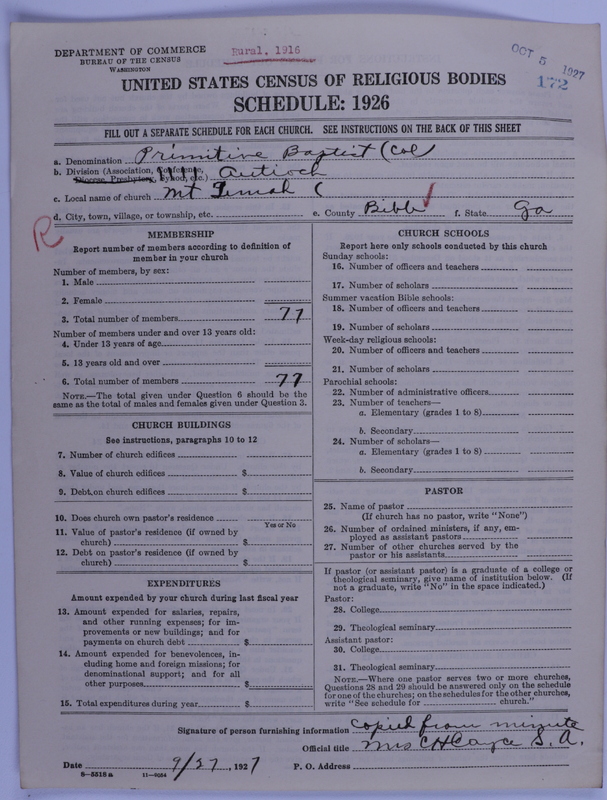 DEPARTMENT OF COMMERCE
BUREAU OF THE CENSUS
WASHINGTON
Rural. 1916
OCT 5 1927
172
UNITED STATES CENSUS OF RELIGIOUS BODIES
SCHEDULE: 1926
FILL OUT A SEPARATE SCHEDULE FOR EACH CHURCH. SEE INSTRUCTIONS ON THE BACK OF THIS SHEET
a. Denomination Primitive Baptist (Col
b. Division (Association, Conference, Diocese, Presbytery, Synod, etc.) Antioch
c. Local name of church Mt (
d. City, town, village, or township, etc. e. County Bibb f. State Ga
R
MEMBERSHIP
Report number of members according to definition of member in your church
Number of members, by sex:
1. Male
2. Female
3. Total number of members 77
Number of members under and over 13 years old:
4. Under 13 years of age
5. 13 years old and over
6. Total number of members 77
NOTE.—The total given under Question 6 should be the same as the total of males and females given under Question 3.
CHURCH BUILDINGS
See instructions, paragraphs 10 to 12
7. Number of church edifices
8. Value of church edifices $
9. Debt on church edifices $
10. Does church own pastor's residence
Yes or No
11. Value of pastor's residence (if owned by church) $
12. Debt on pastor's residence (if owned by church) $
EXPENDITURES
Amount expended by your church during last fiscal year
13. Amount expended for salaries, repairs, and other running expenses; for improvements or new buildings; and for payments on church debt $
14. Amount expended for benevolences, including home and foreign missions; for denominational support; and for all other purposes $
15. Total expenditures during year $
CHURCH SCHOOLS
Report here only schools conducted by this church
Sunday schools:
16. Number of officers and teachers
17. Number of scholars
Summer vacation Bible schools:
18. Number of officers and teachers
19. Number of scholars
Week-day religious schools:
20. Number of officers and teachers
21. Number of scholars
Parochial schools:
22. Number of administrative officers
23. Number of teachers—
a. Elementary (grades 1 to 8)
b. Secondary
24. Number of scholars—
a. Elementary (grades 1 to 8)
b. Secondary
PASTOR
25. Name of pastor
(If church has no pastor, write "None")
26. Number of ordained ministers, if any, employed as assistant pastors
27. Number of other churches served by the pastor or his assistants
If pastor (or assistant pastor) is a graduate of a college or theological seminary, give name of institution below. (If not a graduate, write "No" in the space indicated.)
Pastor:
28. College
29. Theological seminary
Assistant pastor:
30. College
31. Theological seminary
NOTE.—Where one pastor serves two or more churches, Questions 28 and 29 should be answered only on the schedule for one of the churches; on the schedules for the other churches, write "See schedule for church."
Signature of person furnishing information copied from minute
Official title Mrs C H Cayce S. A.
Date 9/27, 1927 P. O. Address
8-5518a 11-9054